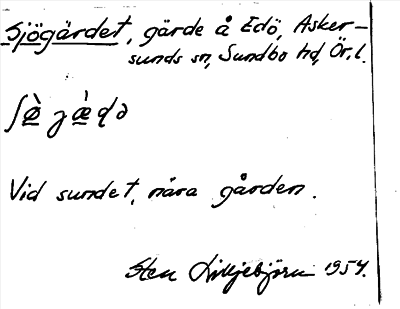 Sjögärdet, gärde å Edö, Asker-
sunds sn, Sundbo hd, Ör. l.
Vid sundet, nära gården.
Sten Liljebjörn 1954.